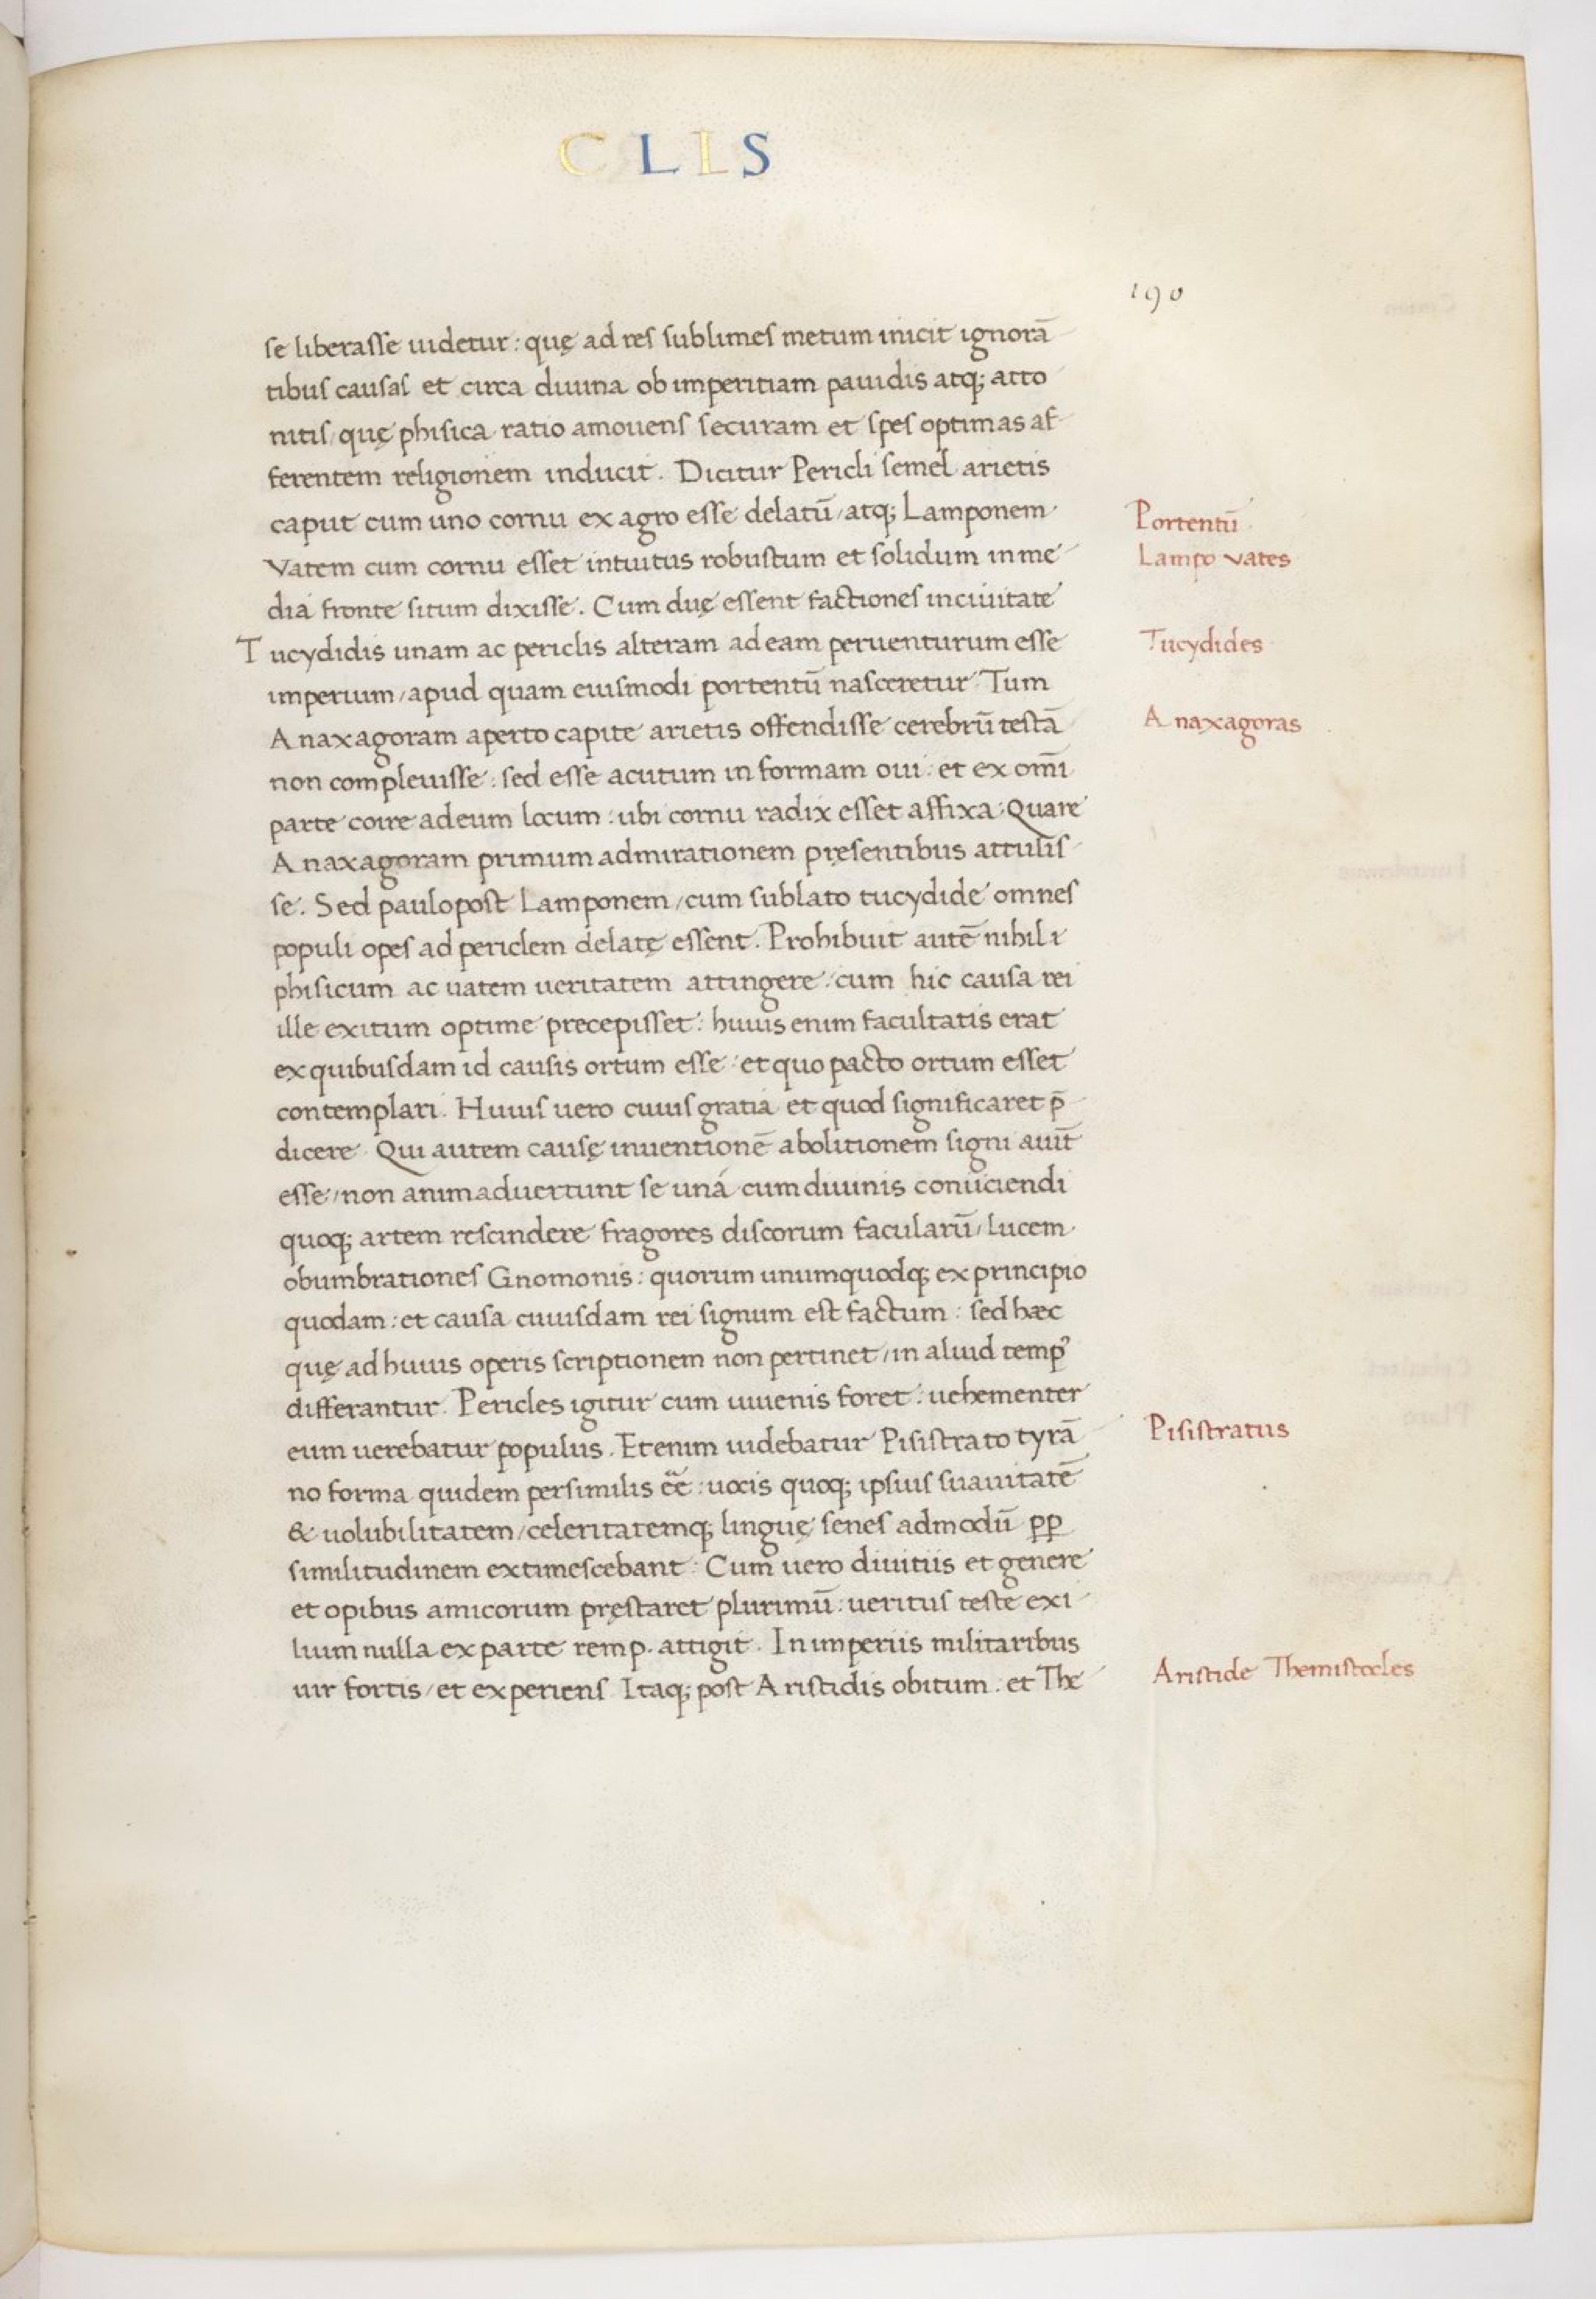 CLIS
190
se liberasse uidetur: quę ad res sublimes metum inicit ignorā
tibus causas et circa diuina ob imperitiam pauidis atq; atto
nitis, quę phisica ratio amouens securam et spes optimas af
ferentem religionem inducit. Dicitur Pericli semel arietis
caput cum uno cornu ex agro esse delatū, atq; Lamponem
Portentū
Vatem cum cornu esset intuitus robustum et solidum in me
Lampo vates
dia fronte situm dixisse. Cum duę essent factiones in ciuitate
Tucydidis unam ac periclis alteram ad eam peruenturum esse
Tucydides
imperium, apud quam eiusmodi portentū nasceretur. Tum
Anaxagoram aperto capite arietis offendisse cerebrū testā
Anaxagoras
non compleuisse: sed esse acutum in formam oui: et ex omī
parte coire ad eum locum: ubi cornu radix esset affixa. Quare
Anaxagoram primum admirationem pręsentibus attulis
se. Sed paulo post Lamponem, cum sublato tucydide omnes
populi opes ad periclem delatę essent. Prohibuit autē nihil &
phisicum ac uatem ueritatem attingere: cum hic causa rei
ille exitum optime precepisset: huius enim facultatis erat
ex quibusdam id causis ortum esse: et quo pacto ortum esset
contemplari. Huius uero cuius gratia et quod significaret p̄
dicere. Qui autem causę inuentionē abolitionem signi auīt
esse, non animaduertunt se uná cum diuinis coniiciendi
quoq; artem rescindere fragores discorum facularū, lucem
obumbrationes Gnomonis: quorum unumquodq; ex principio
quodam: et causa cuiusdam rei signum est factum: sed hæc
quę ad huius operis scriptionem non pertinet, in aliud temp᾿
differantur. Pericles igitur cum iuuenis foret: uehementer
eum uerebatur populus. Etenim uidebatur Pisistrato tyrā
Pisistratus
no forma quidem persimilis ēē: uocis quoq; ipsius suauitatē
& uolubilitatem, celeritatemq; linguę senes admodū ꝑꝑ
similitudinem extimescebant. Cum uero diuitiis et genere
et opibus amicorum pręstaret plurimū: ueritus teste exi
lium nulla ex parte rem p. attigit. In imperiis militaribus
uir fortis, et experiens. Itaq; post Aristidis obitum: et The
Aristide Themistocles